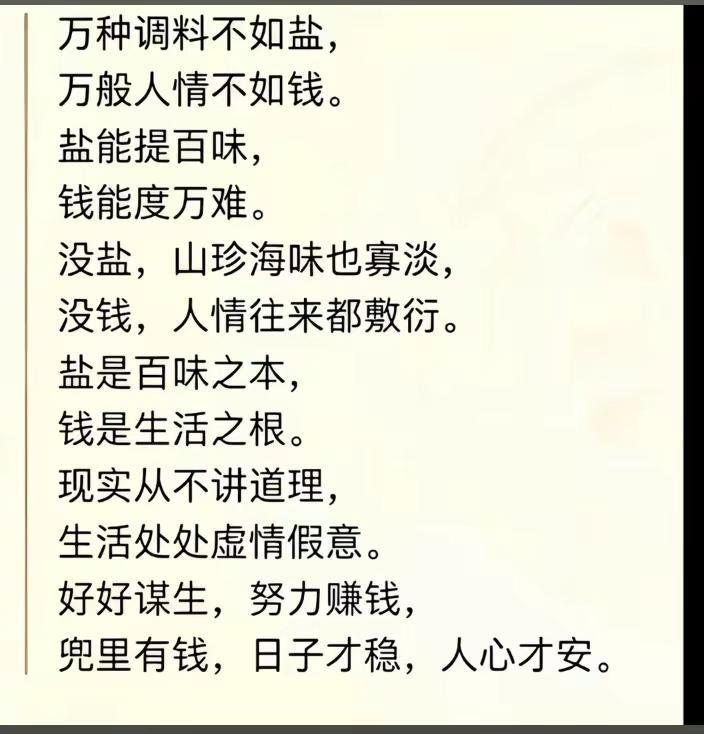 万种调料不如盐，
万般人情不如钱。
盐能提百味，
钱能度万难。
没盐，山珍海味也寡淡，
没钱，人情往来都敷衍。
盐是百味之本，
钱是生活之根。
现实从不讲道理，
生活处处虚情假意。
好好谋生，努力赚钱，
兜里有钱，日子才稳，人心才安。